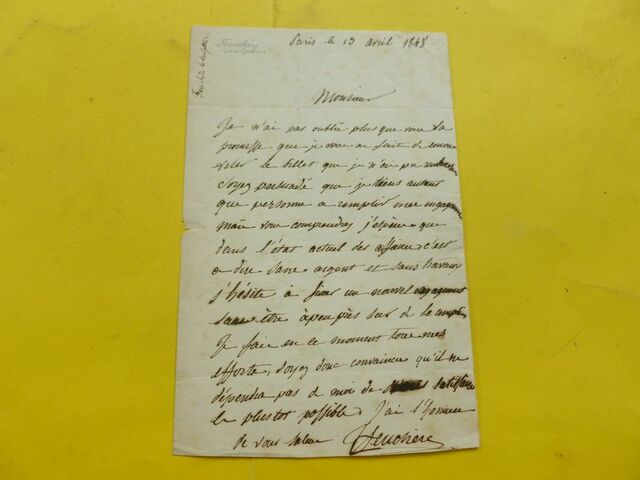 Paris le 13 avril 1848
Monsieur
Je n'ai pas oublié plus que vous la
promesse que je vous ai fait de renou
veler le billet que je n'ai pu
Soyez persuadé que je tiens autant
que personne a remplir mes engagemens
mais vous comprendrez j'espère que
dans l'état actuel des affaires, c'est
a dire sans argent et sans travaux
j'hésite à fixer un nouvel engagement
sans être àpeuprès sur de le remplir
Je fais en ce moment tous mes
efforts, soyez donc convaincu qu'il ne
dépendra pas de moi de satisfaire
le plustot possible. J'ai l'honneur
de vous saluer Feuchère